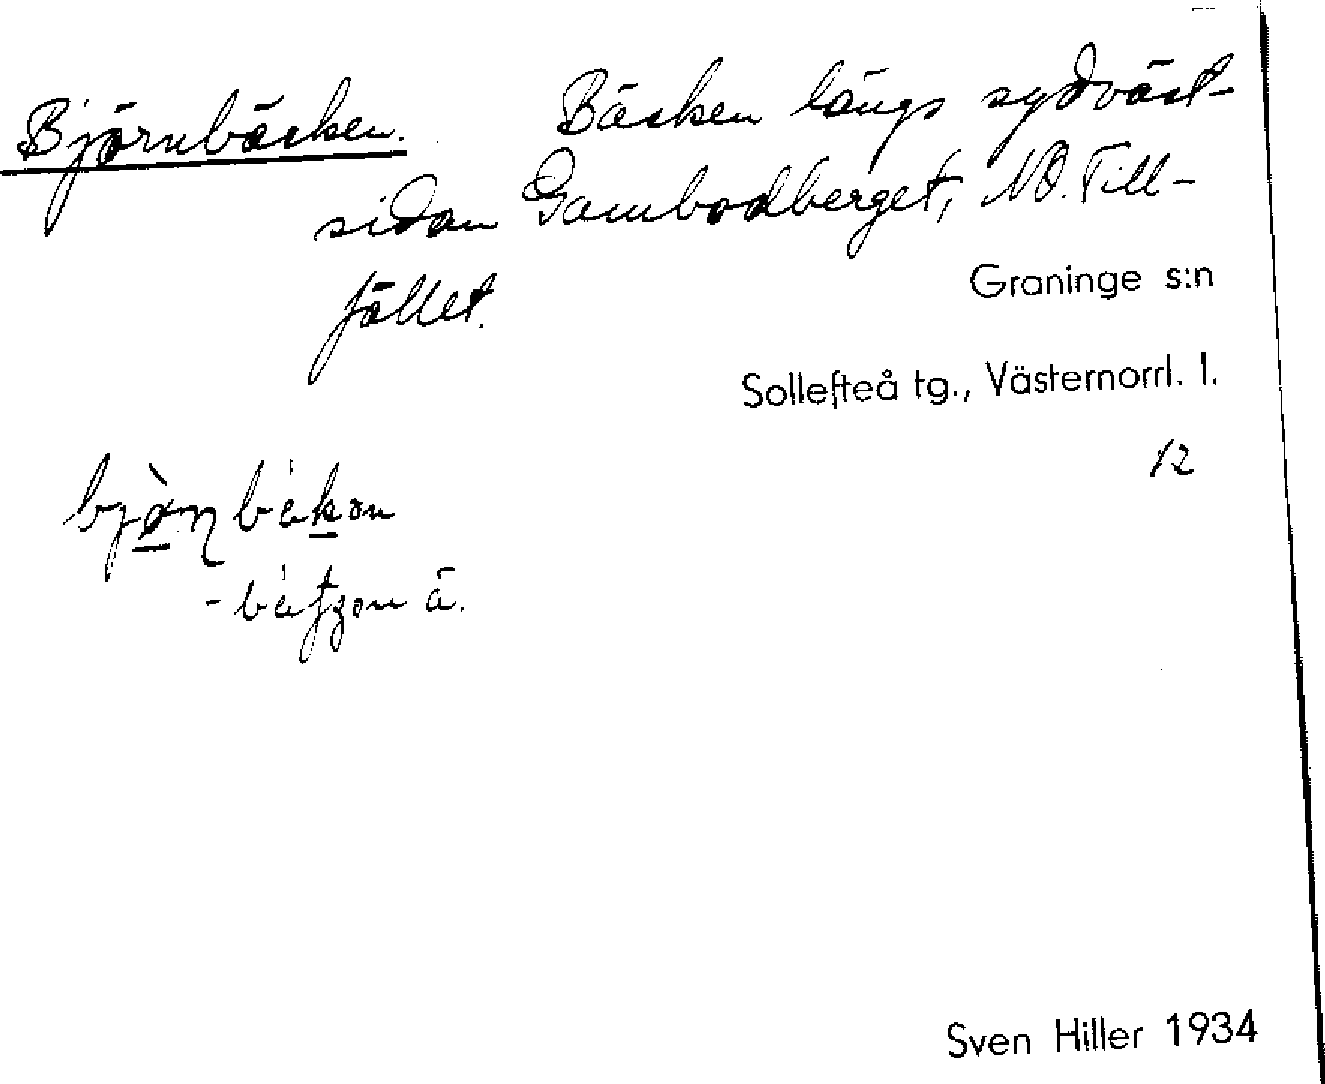 Björnbäcken. Bäcken längs sydväst-
sidan Gambodberget, NO. Till-
fället.
Graninge s:n
Sollefteå tg., Västernorrl. l.
12
bjὰ̠ɳbäk̠ən
-bätʃən ä.
Sven Hiller 1934